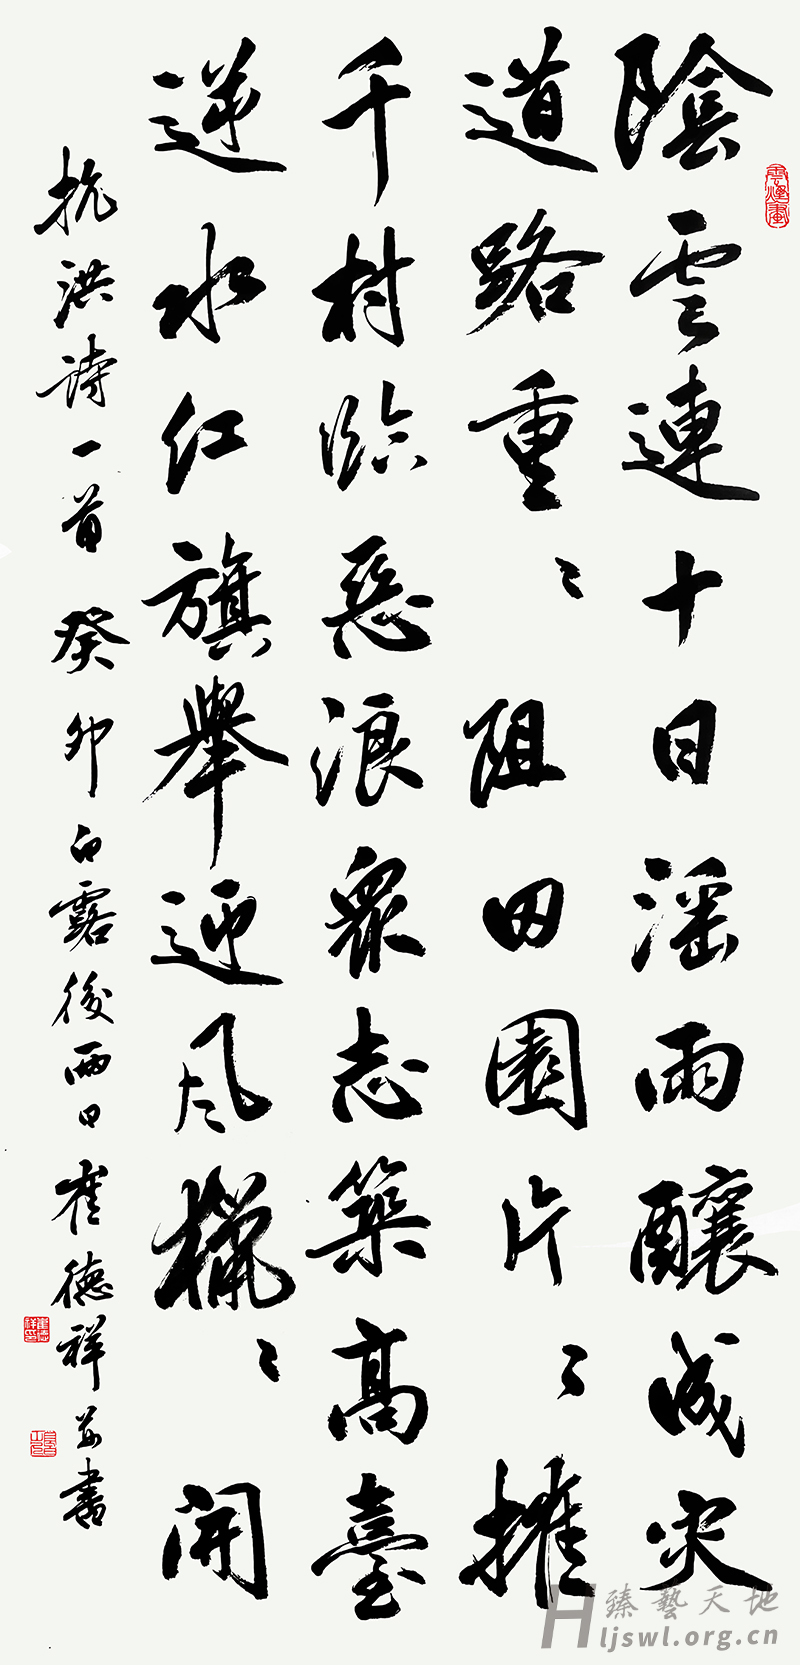 陰雲連十日淫雨釀成灾
道路重〻阻田園片〻摧
千村臨惡浪衆志築高臺
逆水红旗舉迎风獵〻開
抗洪詩一首 癸卯白露後兩日 崔德祥并書
臻藝天地
Hljswl.org.cn